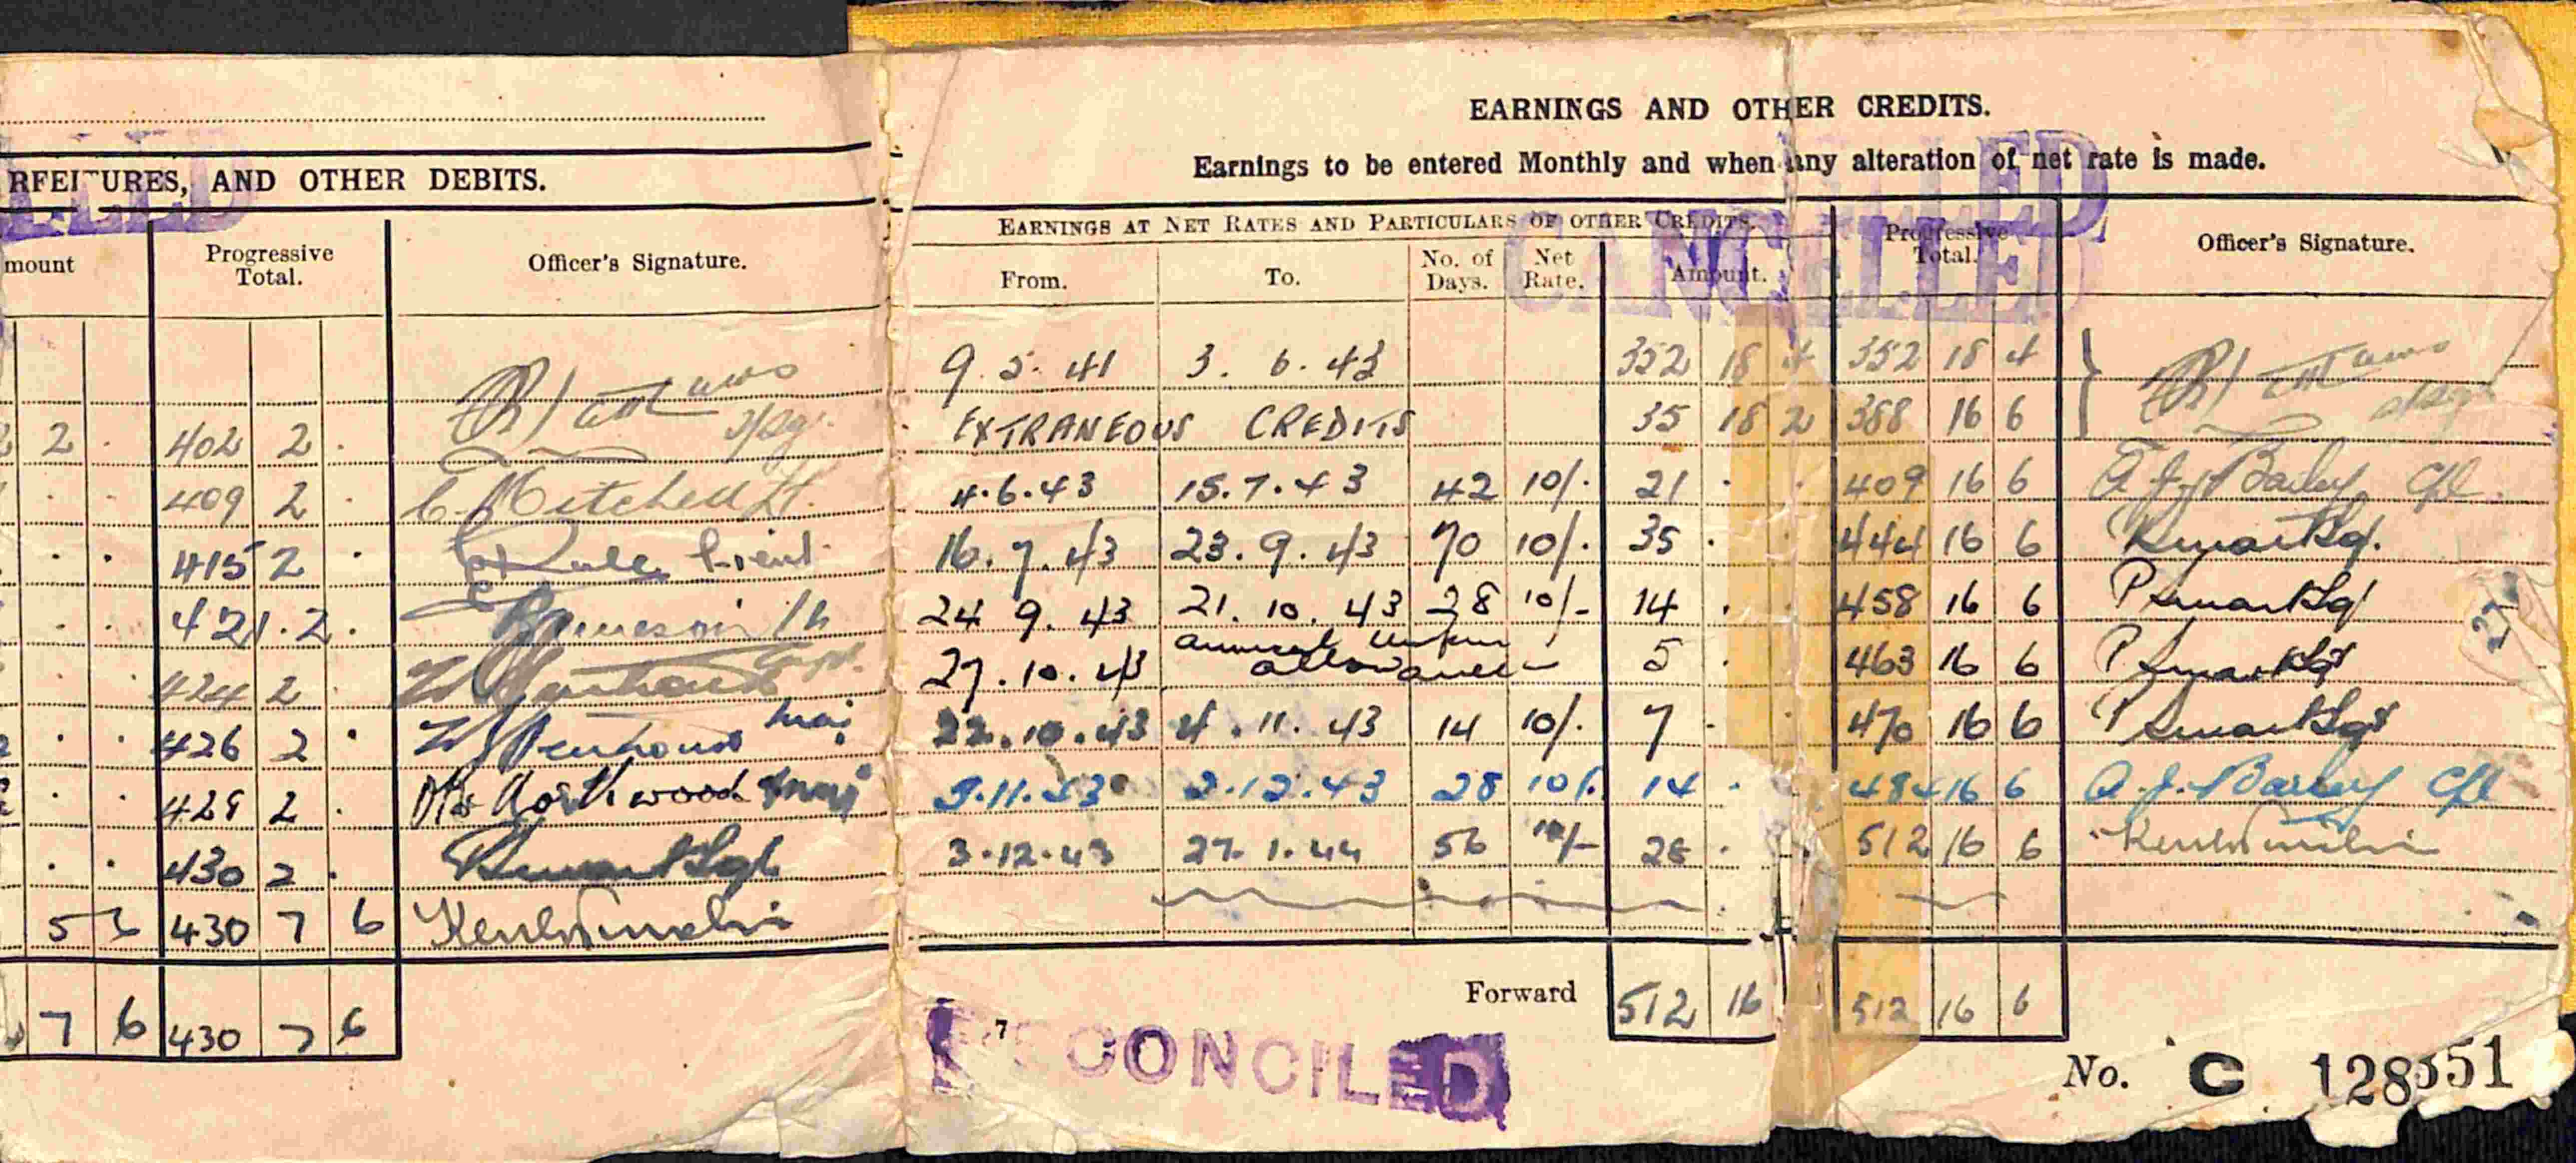 RFEITURES, AND OTHER DEBITS.
mount
Progressive Total.
Officer's Signature.
2 402 2 .
409 2 . C. Mitchell Lt.
. . 415 2 . Lieut
. . 421 . 2 .
424 2 Capt.
. . 426 2 . Maj
. . 428 2 . Northwood
. . 430 2 .
5 6 430 7 6
7 6 430 7 6
EARNINGS AND OTHER CREDITS.
Earnings to be entered Monthly and when any alteration of net rate is made.
CANCELLED
EARNINGS AT NET RATES AND PARTICULARS OF OTHER CREDITS.
From. To. No. of Days. Net Rate. Amount. Progressive Total. Officer's Signature.
9.5.41 3.6.43 352 18 4 352 18 4
EXTRANEOUS CREDITS 35 18 2 388 16 6
4.6.43 15.7.43 42 10/. 21 . . 409 16 6 Bailey Cpl.
16.7.43 23.9.43 70 10/. 35 . 444 16 6
24 9.43 21.10.43 28 10/- 14 . 458 16 6 P Smart Sgt
27.10.43 annual allowance - 5 . 463 16 6 P Smart Sgt
22.10.43 4.11.43 14 10/. 7 . 470 16 6 P Smart Sgt
5.11.43 2.12.43 28 10/. 14 . 484 16 6 A. J. Bailey Cpl
3.12.43 27.1.44 56 10/- 28 . 512 16 6
Forward 512 16 512 16 6
7
RECONCILED
No. C 128551